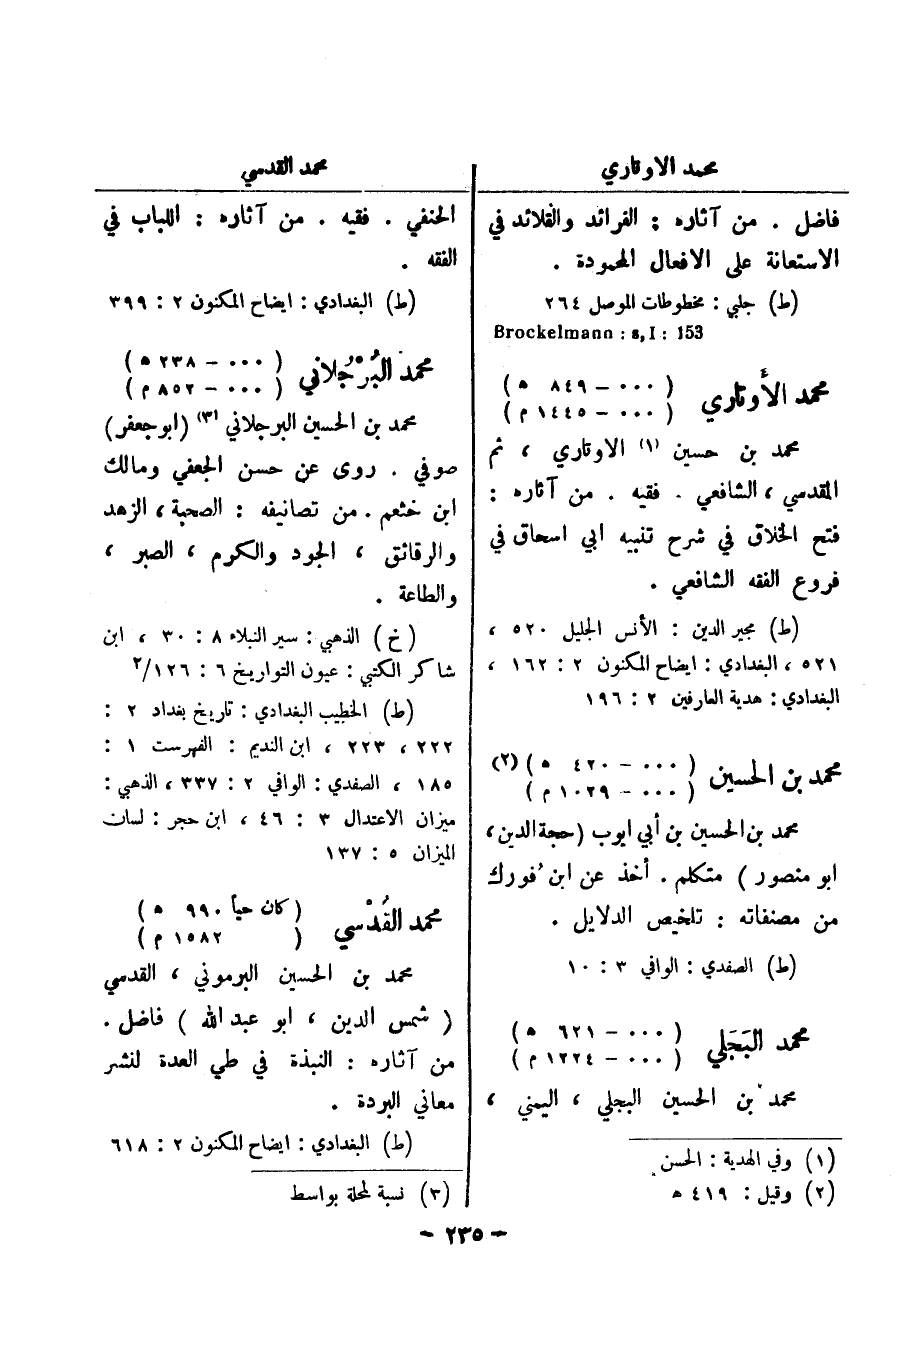 محمد الاوتاري
فاضل . من آثاره : الفرائد والقلائد في
الاستعانة على الافعال المحمودة .
(ط) جلبي : مخطوطات الموصل ٢٦٤
Brockelmann : s, I : 153
محمد الأوتاري (٠٠٠ - ٨٤٩ ه)
(٠٠٠ - ١٤٤٥ م)
محمد بن حسين (١) الاوتاري ، ثم
المقدسي ، الشافعي . فقيه . من آثاره :
فتح الخلاق في شرح تنبيه ابي اسحاق في
فروع الفقه الشافعي .
(ط) مجير الدين : الأنس الجليل ٥٢٠ ،
٥٢١ ، البغدادي : ايضاح المكنون ٢ : ١٦٢ ،
البغدادي : هدية العارفين ٢ : ١٩٦
محمد بن الحسين (٠٠٠ - ٤٢٠ ه) (٢)
(٠٠٠ - ١٠٢٩ م)
محمد بن الحسين بن أبي ايوب (حجة الدين ،
ابو منصور) متكلم . أخذ عن ابن فُورك
من مصنفاته : تلخيص الدلايل .
(ط) الصفدي : الوافي ٣ : ١٠
محمد البَجَلي (٠٠٠ - ٦٢١ ه)
(٠٠٠ - ١٢٢٤ م)
محمد بن الحسين البجلي ، اليمني ،
(١) وفي الهدية : الحسن
(٢) وقيل : ٤١٩ ه
محمد القدسي
الحنفي . فقيه . من آثاره : اللباب في
الفقه .
(ط) البغدادي : ايضاح المكنون ٢ : ٣٩٩
محمد البُرْجُلاني (٠٠٠ - ٢٣٨ ه)
(٠٠٠ - ٨٥٢ م)
محمد بن الحسين البرجلاني (٣) (ابو جعفر)
صوفي . روى عن حسن الجعفي ومالك
ابن خثعم . من تصانيفه : الصحبة ، الزهد
والرقائق ، الجود والكرم ، الصبر ،
والطاعة .
(خ) الذهبي : سير النبلاء ٨ : ٣٠ ، ابن
شاكر الكتبي : عيون التواريخ ٦ : ١٢٦/٢
(ط) الخطيب البغدادي : تاريخ بغداد ٢ :
٢٢٢ ، ٢٢٣ ، ابن النديم : الفهرست ١ :
١٨٥ ، الصفدي : الوافي ٢ : ٣٣٧ ، الذهبي :
ميزان الاعتدال ٣ : ٤٦ ، ابن حجر : لسان
الميزان ٥ : ١٣٧
محمد القُدْسي (كان حياً ٩٩٠ ه)
(١٥٨٢ م)
محمد بن الحسين البرموني ، القدسي
(شمس الدين ، ابو عبد الله) فاضل .
من آثاره : النبذة في طي العدة لنشر
معاني البردة .
(ط) البغدادي : ايضاح المكنون ٢ : ٦١٨
(٣) نسبة لمحلة بواسط
- ٢٣٥ -